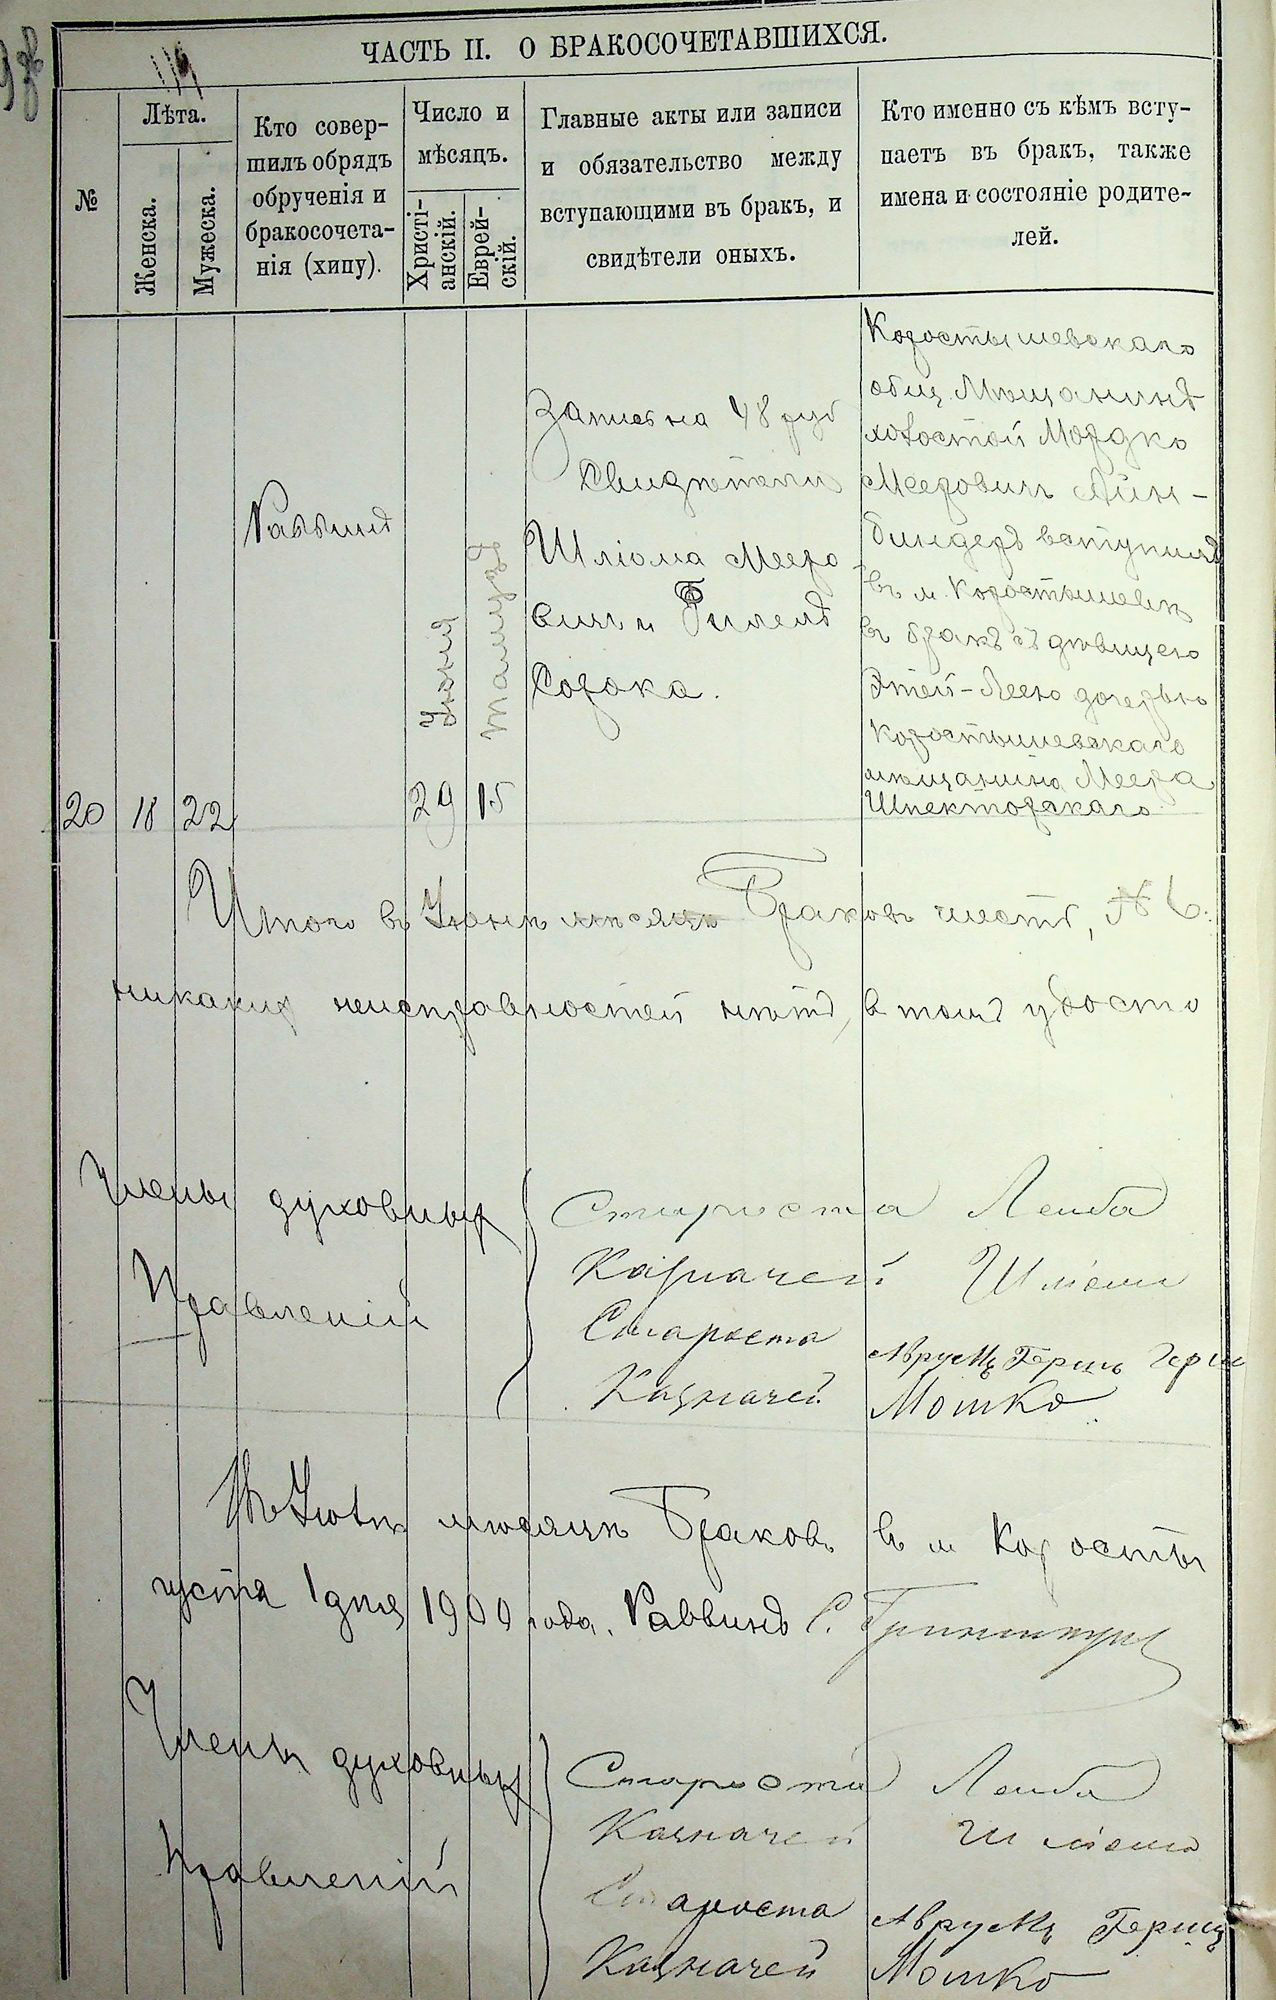 ЧАСТЬ II. О БРАКОСОЧЕТАВШИХСЯ.
№
Лѣта.
Женска.
Мужеска.
Кто совер-
шилъ обрядъ
обрученія и
бракосочета-
нія (хипу).
Число и
мѣсяцъ.
Христі-
анскій.
Еврей-
скій.
Главные акты или записи
и обязательство между
вступающими въ бракъ, и
свидѣтели оныхъ.
Кто именно съ кѣмъ всту-
паетъ въ бракъ, также
имена и состояніе родите-
лей.
20
18
22
Раввинъ
Іюня
29
Таммуза
15
Запись на 48 руб
Свидѣтели
Шліома Мееро
вич и Гилелъ
Сорока.
Коростышевскаго
общ. Мѣщанинъ
холостой Мордко
Мееровичъ Айн-
биндеръ вступилъ
въ м. Коростышевѣ
въ бракъ съ дѣвицею
Этей-Леею дочерью
Коростышевскаго
мѣщанина Меера
Шпекторскаго
Итого въ Іюнѣ мѣсяцѣ Браковъ шесть, № 6.
никакихъ неисправностей нѣтъ, в томъ удосто
Члены духовныхъ
Правленій
Староста Лейба
Казначей Шліома
Староста Аврумъ Гершъ Герш
Казначей Мошко
Въ Іюлѣ мѣсяцѣ Браковъ въ м Коросты
густа 1 дня 1900 года. Раввинъ С. Гриншпунъ
Члены духовныхъ
Правленій
Староста Лейба
Казначей Шліома
Староста Аврумъ Гершъ
Казначей Мошко